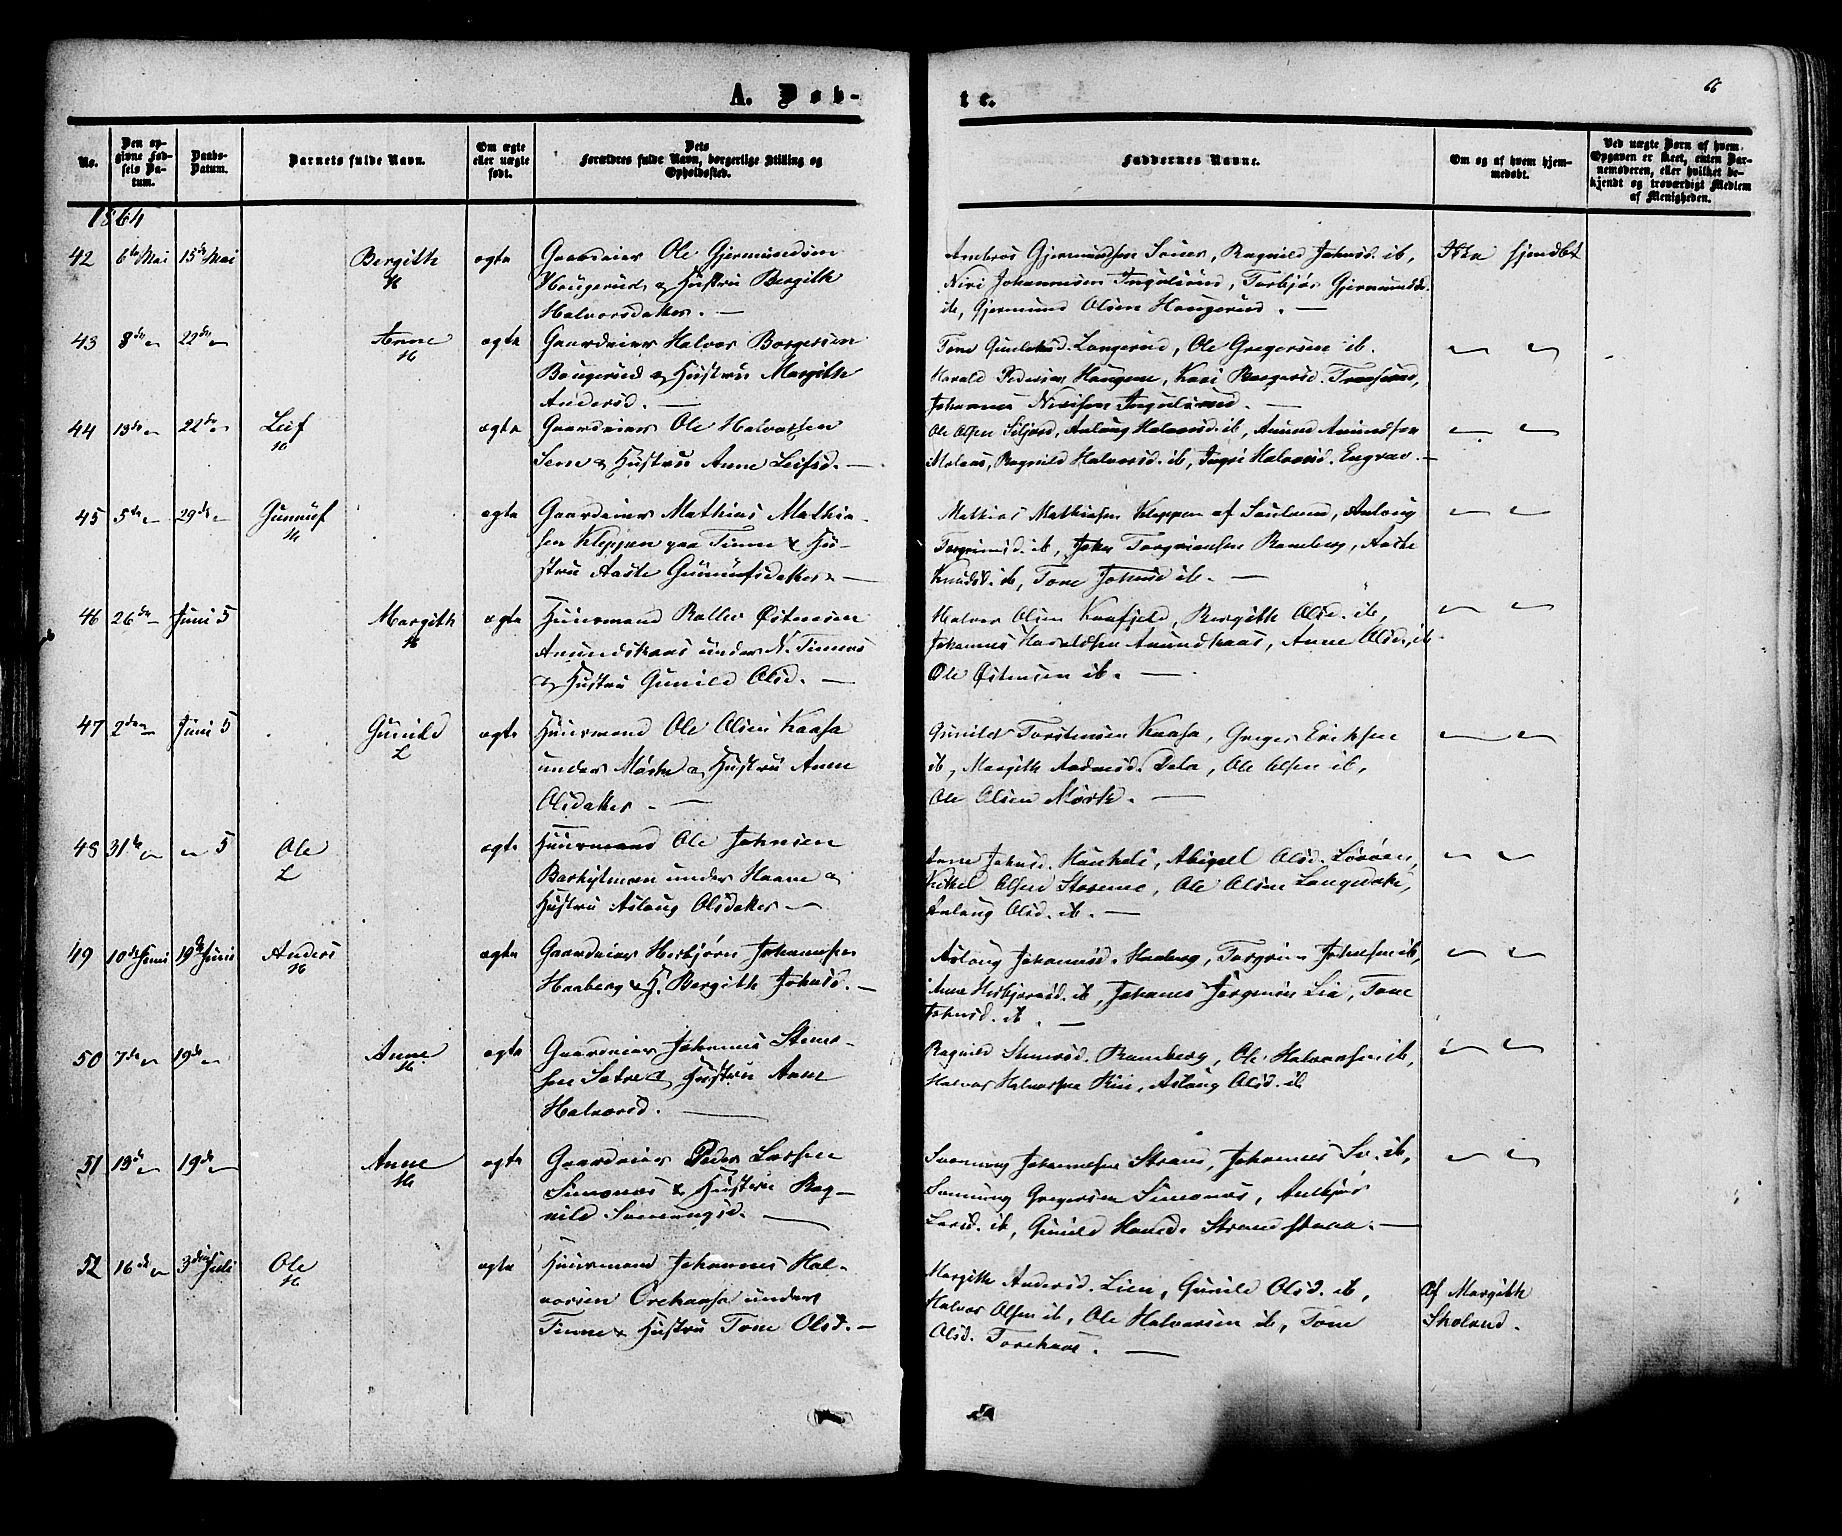 A. Døb-
te.
66
No.
Den opgivne Fødsels Datum.
Daabs-Datum.
Barnets fulde Navn.
Om ægte eller uægte født.
Dets Forældres fulde Navn, borgerlige Stilling og Opholdssted.
Faddernes Navne.
Om og af hvem hjemmedøbt.
Ved uægte Børn af hvem Opgaven er skeet, enten Barnemoderen, eller hvilket bekjendt og troværdigt Medlem af Menigheden.
1864
42 6te Mai 15de Mai Bergith H ægte Gaardeier Ole Gjermundsen
Haugerud & Hustru Bergith
Halvorsdatter. —
Ambros Gjermundsen, Ragnild Johnsd. ib,
Johannesen, Torbjør Gjermundsd.
ib, Gjermund Olsen Haugerud. —
Ikke hjemdbt
43 8de 22de Anne H ægte Gaardeier Halvor Borgersen
Bougerud & Hustru Margith
Andersd. —
Tone Langerud, Ole Gregersen ib.
Harald Pedersen Haugene, Kari Borgersd.
Johannes —
44 13de 22de Leif H ægte Gaardeier Ole Halvorsen
Sem & Hustru Anne Leifsd. —
Ole Olsen Siljord, Aslaug Halvorsd. ib, Amund Amundsen
Moloas, Ragnild Halvorsd. ib, Ingri Halvorsd. Engrav. —
45 5te 29de Gunnuf H ægte Gaardeier Mathias Mathia-
sen Kleppen paa Tinne & Hu-
stru Aaste Gunnufsdatter —
Mathias Mathiasen Kleppen af Sauland, Aslaug
Torgrimsd. ib, John Torgrimsen Ramberg, Aaste
Knudsd. ib, Tone Johnsd ib. —
46 26de Juni 5 Margith H ægte Huusmand Østensen
Amundskaas under N. Tinnes
& Hustru Gunild Olsd. —
Halvor Olsen Kaafjeld, Bergith Olsd. ib,
Johannes Haraldsen Amundkaas, Anne Olsd. ib
Ole Østensen ib. —
47 2den Juni 5 Gunild L ægte Huusmand Ole Olsen Kaasa
under Mørk & Hustru Anne
Olsdatter. —
Gunild Torstensen Kaasa, Greger Eriksen
ib, Margith Andersd. Dala, Ole Olsen ib,
Ole Olsen Mørk. —
48 31te 5 Ole L ægte Huusmand Ole Johnsen
under Haave &
Hustru Aslaug Olsdatter —
Anne Johnsd. Abigael Olsd.
Kittel Olsen Ole Olsen
Aslaug Olsd. ib. —
49 10de Juni 19de Juni Anders H ægte Gaardeier Herbjørn Johannesen
Haaberg & H. Bergith Johnsd. —
Aslaug Johannesd. Haaberg, Torgrim Johnsen ib,
Anne Herbjørnsd. ib, Johanes Jørgensen Lia, Tone
Johnsd. ib. —
50 7de 19de Anne H ægte Gaardeier Johannes Stener-
sen Sætre & Hustru Anne
Halvorsd. —
Ragnild Stenersd. Ramberg, Ole Halvorsen ib,
Halvor Halvorsen Aslaug Olsd. ib
51 13de 19de Anne H ægte Gaardeier Peder Larsen
Simonæs & Hustru Rag-
nild Sveinungsd. —
Svenung Johannesen Strand, Johannes Sv. ib,
Svenung Gregersen Simonæs,
Larsd. ib, Gunild Hansd. —
52 16de 3den Juli Ole H ægte Huusmand Johannes Hal-
vorsen Orekaasa under
Tinne & Hustru Tone Olsd. —
Margith Andersd. Lien, Gunild Olsd. ib,
Halvor Olsen ib, Ole Halvorsen ib, Tone
Olsd. Torekaas. —
Af Margith
Skoland.